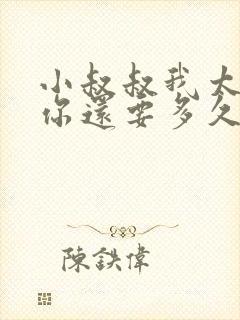 小叔叔我太
你還要多久
陳鉄偉